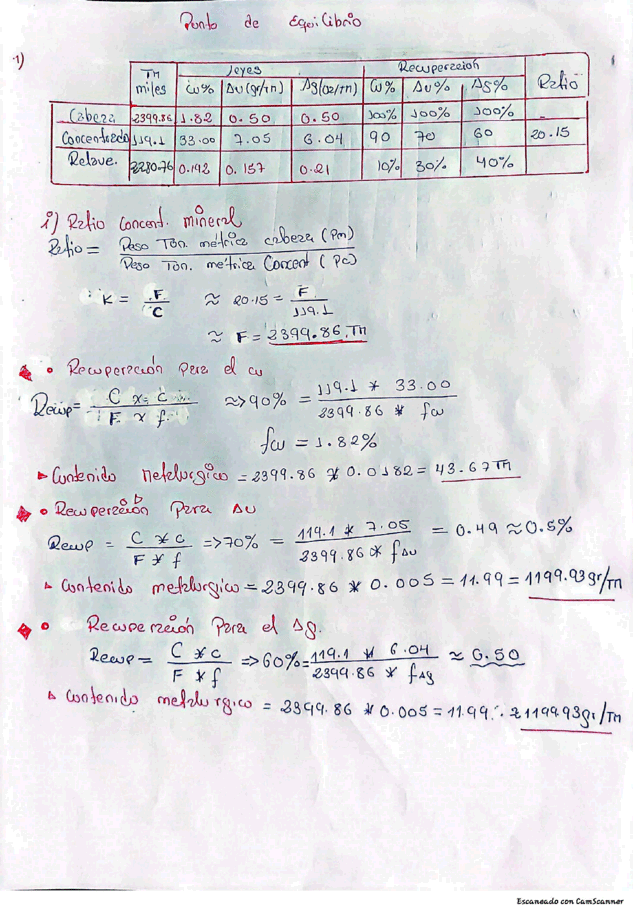 Punto de Equilibrio
1)
Tn miles | leyes | Recuperación | Ratio
cu% | Au(gr/Tn) | Ag(oz/Tn) | Cu% | Au% | Ag%
Cabeza | 2399.86 | 1.82 | 0.50 | 0.50 | 100% | 100% | 100%
Concentrado | 119.1 | 33.00 | 7.05 | 6.04 | 90 | 70 | 60 | 20.15
Relave. | 2280.76 | 0.192 | 0.157 | 0.21 | 10% | 30% | 40%
i) Ratio Concent. mineral
Ratio = Peso Ton. métrica cabeza (Pm) / Peso Ton. metrica Concent (Pc)
K = F / C ≈ 20.15 = F / 119.1
≈ F = 2399.86 Tn
• Recuperación para el cu
Recup = C x c / F x f ≈> 90% = 119.1 * 33.00 / 2399.86 * fcu
fcu = 1.82%
▸ Contenido Metalurgico = 2399.86 * 0.0182 = 43.67 Tn
• Recuperación Para Au
Recup = C * c / F * f => 70% = 119.1 * 7.05 / 2399.86 * fAu = 0.49 ≈ 0.5%
▸ Contenido metalurgico = 2399.86 * 0.005 = 11.99 = 1199.93 gr/Tn
• Recuperación Para el Ag.
Recup = C * c / F * f => 60% = 119.1 * 6.04 / 2399.86 * fAg ≈ 0.50
▸ Contenido metalurgico = 2399.86 * 0.005 = 11.99 ≈ 1199.93 gr/Tn
Escaneado con CamScanner